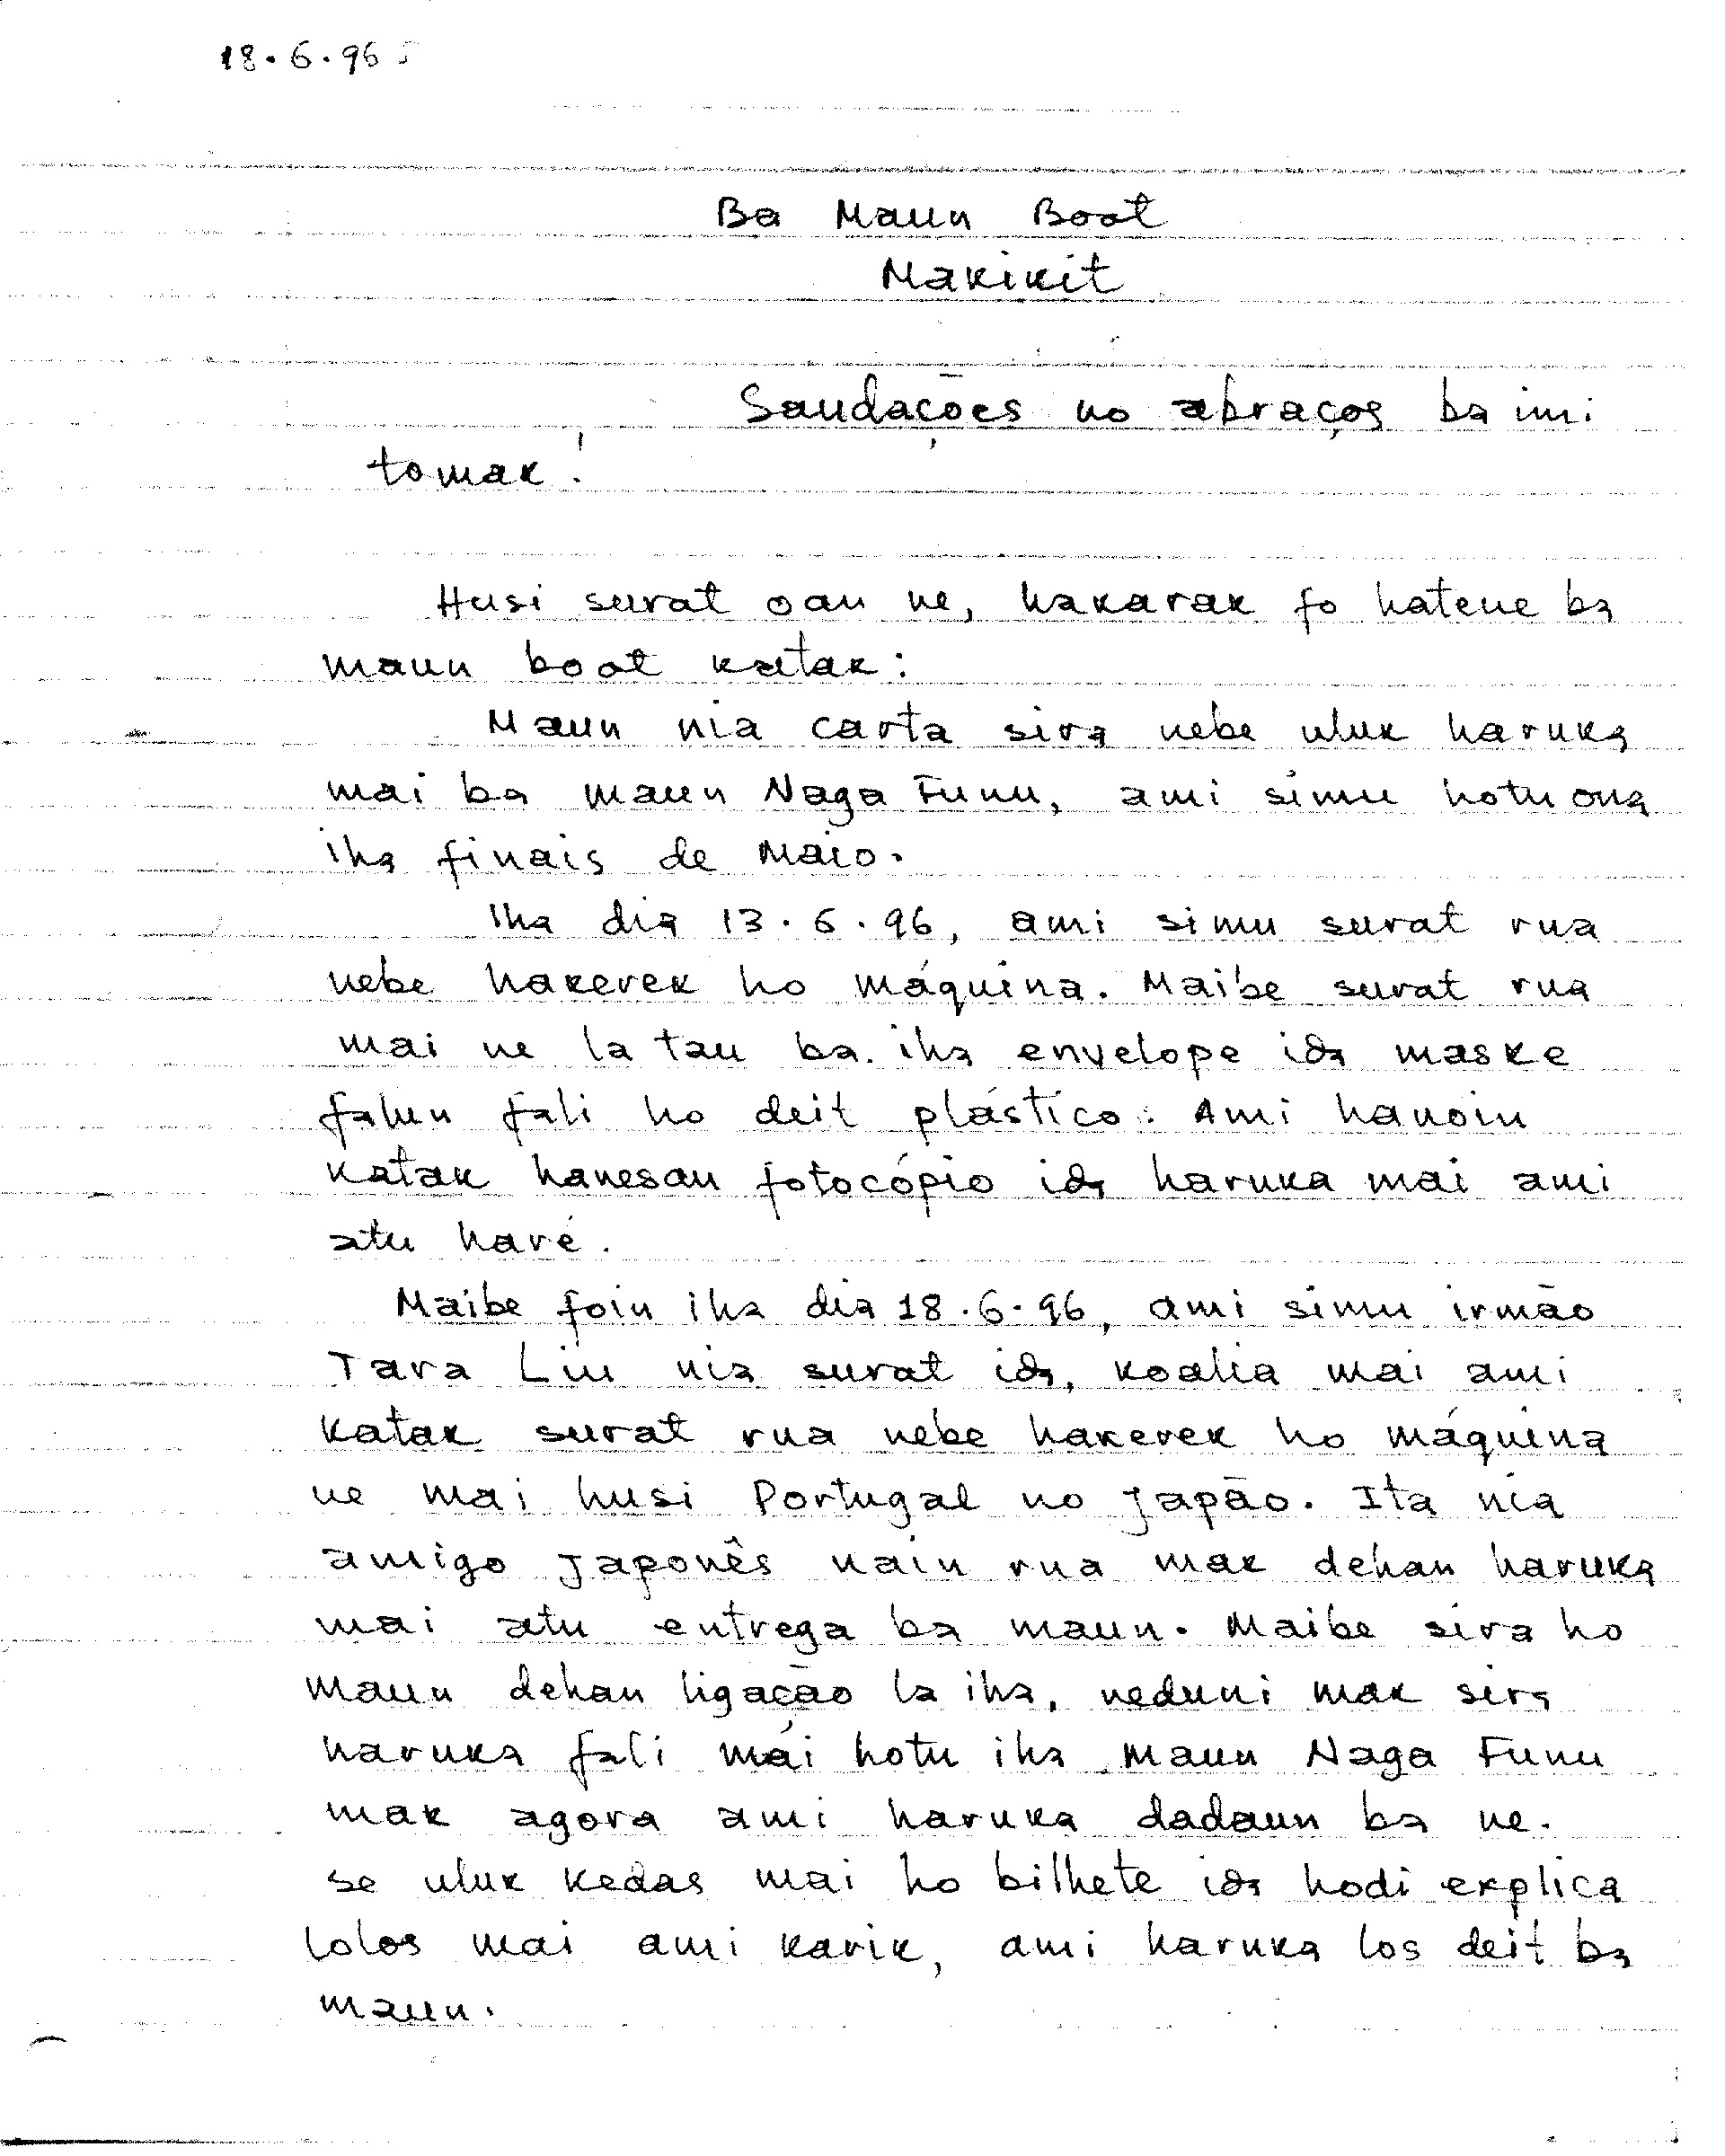 18.6.96
Ba Maun Boot
Makikit
Saudações no abraços ba imi
tomak!
Husi surat oan ne, hakarak fo hatene ba
maun boot katak:
Maun nia carta sira nebe uluk haruka
mai ba maun Naga Funu, ami simu hotu ona
iha finais de Maio.
Iha dia 13.6.96, ami simu surat rua
nebe hakerek ho máquina. Maibe surat rua
mai ne la tau ba iha envelope ida maske
falun fali ho deit plástico. Ami hanoin
katak hanesan fotocópio ida haruka mai ami
atu haré.
Maibe foin iha dia 18.6.96, ami simu irmão
Tara Liu nia surat ida, koalia mai ami
katak surat rua nebe hakerek ho máquina
ne mai husi Portugal no Japão. Ita nia
amigo Japonês nain rua mak dehan haruka
mai atu entrega ba maun. Maibe sira ho
maun dehan ligação la iha, neduni mak sira
haruka fali mái hotu iha maun Naga Funu
mak agora ami haruka dadaun ba ne.
Se uluk kedas mai ho bilhete ida hodi explica
lolos mai ami karik, ami haruka los deit ba
maun.